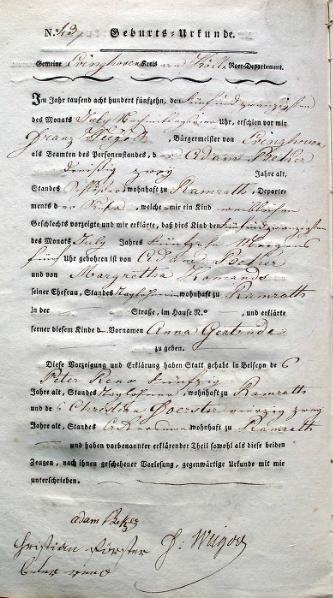 Geburts-Urkunde.
Gemeine Evinghoven Kreis Köln Roer-Departement.
Im Jahr tausend acht hundert fünfzehn, den fünfundzwanzigsten
des Monats July Uhr, erschien vor mir
Franz , Bürgermeister von Evinghoven
als Beamten des Personenstandes, d Adam Beker
Jahre alt,
Standes wohnhaft zu Ramrath, Departe-
ments d , welche mir ein Kind weiblichen
Geschlechts vorzeigte und mir erklärte, daß dies Kind den fünfundzwanzigsten
des Monats July Jahres fünfzehn Morgens
fünf Uhr gebohren ist von Adam Becker
und von Margretha Kamands
seiner Ehefrau, Standes wohnhaft zu Ramrath
in der Straße, im Hause N.o , und erklärte
ferner diesem Kinde den Vornamen Anna Gertrud
zu geben.
Diese Vorzeigung und Erklärung haben Statt gehabt in Beiseyn des
Peter Reno fünfzig
Jahre alt, Standes wohnhaft zu Ramrath
und des Christian Foerster vierzig zwey
Jahre alt, Standes wohnhaft zu Ramrath
und haben vorbenannter erklärender Theil sowohl als diese beiden
Zeugen, nach ihnen geschehener Vorlesung, gegenwärtige Urkunde mit mir
unterschrieben.
adam Beker
christian Förster
Peter reno